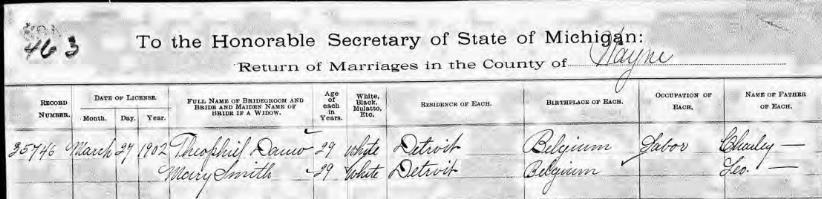 463
To the Honorable Secretary of State of Michigan:
Return of Marriages in the County of Wayne
RECORD NUMBER. DATE OF LICENSE. Month. Day. Year. FULL NAME OF BRIDEGROOM AND BRIDE AND MAIDEN NAME OF BRIDE IF A WIDOW. Age of each in Years. White, Black, Mulatto, Etc. RESIDENCE OF EACH. BIRTHPLACE OF EACH. OCCUPATION OF EACH. NAME OF FATHER OF EACH.
35746 March 27 1902 Theophiel 29 White Detroit Belgium Labor Charley —
Mary Smith 29 White Detroit Belgium Geo. —